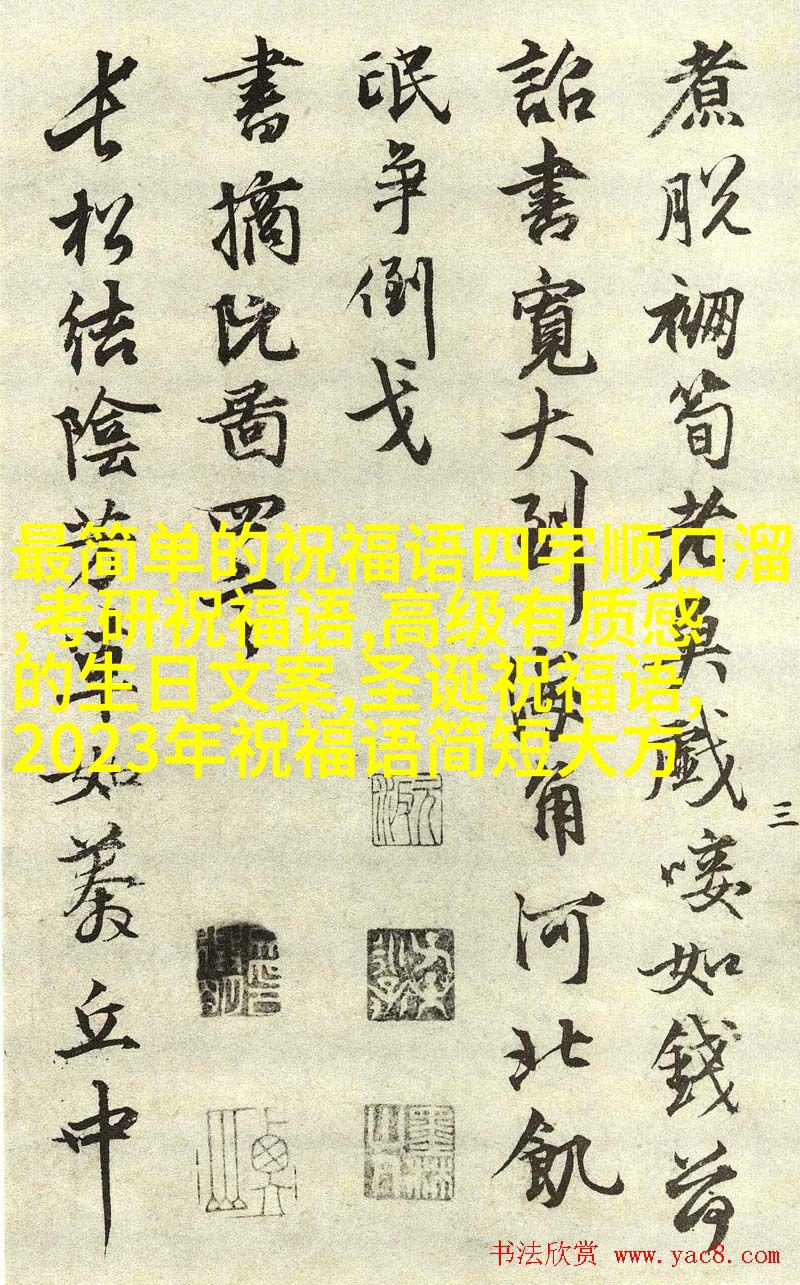 煮脱筍老戲唼如錢荷
詔書寬大到海角河北飢
氓争倒戈
書摘阮圖四
長松結陰芳草如丘中
三
最简单的祝福语四字顺口溜
,考研祝福语,高级有质感
的生日文案,圣诞祝福语,
2023年祝福语简短大方
书法欣赏 www.yac8.com